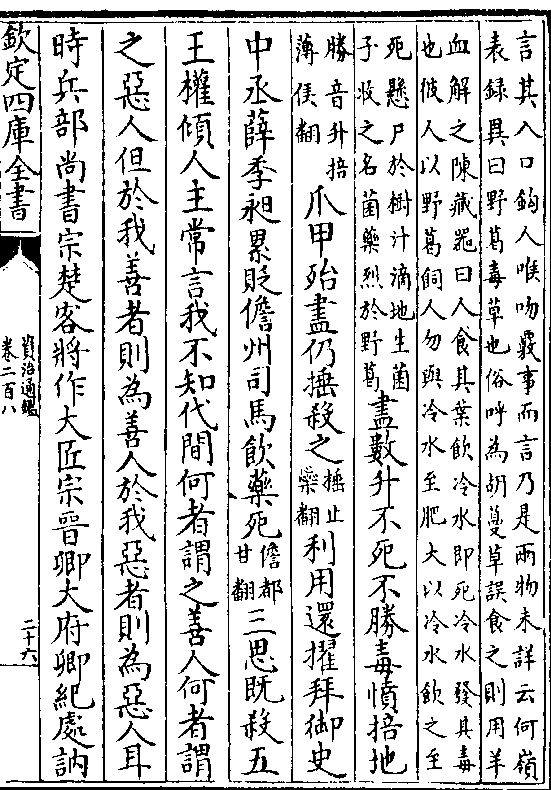 言其入口鉤人喉吻覈事而言乃是兩物未詳云何嶺
表録異曰野葛毒草也俗呼為胡蔓草誤食之則用羊
血解之陳藏器曰人食其葉飲冷水即死冷水發其毒
也彼人以野葛飼人勿與冷水至肥大以冷水飲之至
死懸尸於樹汁滴地生菌
子收之名菌藥烈於野葛
盡數升不死不勝毒憤掊地
勝音升掊
薄侯翻
爪甲殆盡仍捶殺之
捶止
橤翻
利用還擢拜御史
中丞薛季昶累貶儋州司馬飲藥死
儋都
甘翻
三思既殺五
王權傾人主常言我不知代間何者謂之善人何者謂
之惡人但於我善者則為善人於我惡者則為惡人耳
時兵部尚書宗楚客將作大匠宗晉卿大府卿紀處訥
欽定四庫全書
資治通鑑
卷二百八
二十六